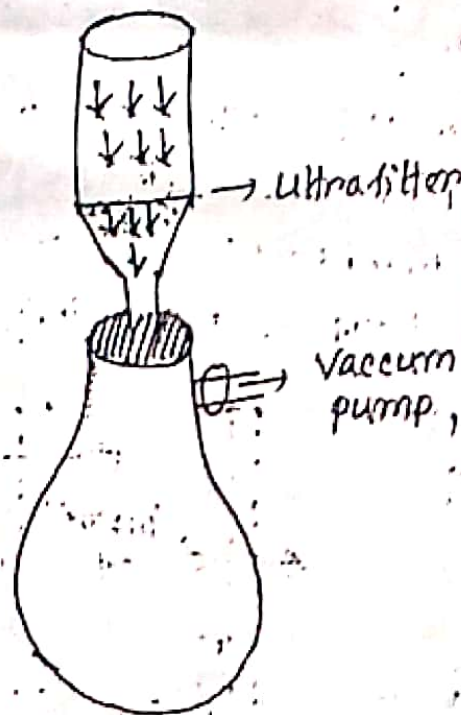 Ultrafilter
vaccum
pump,